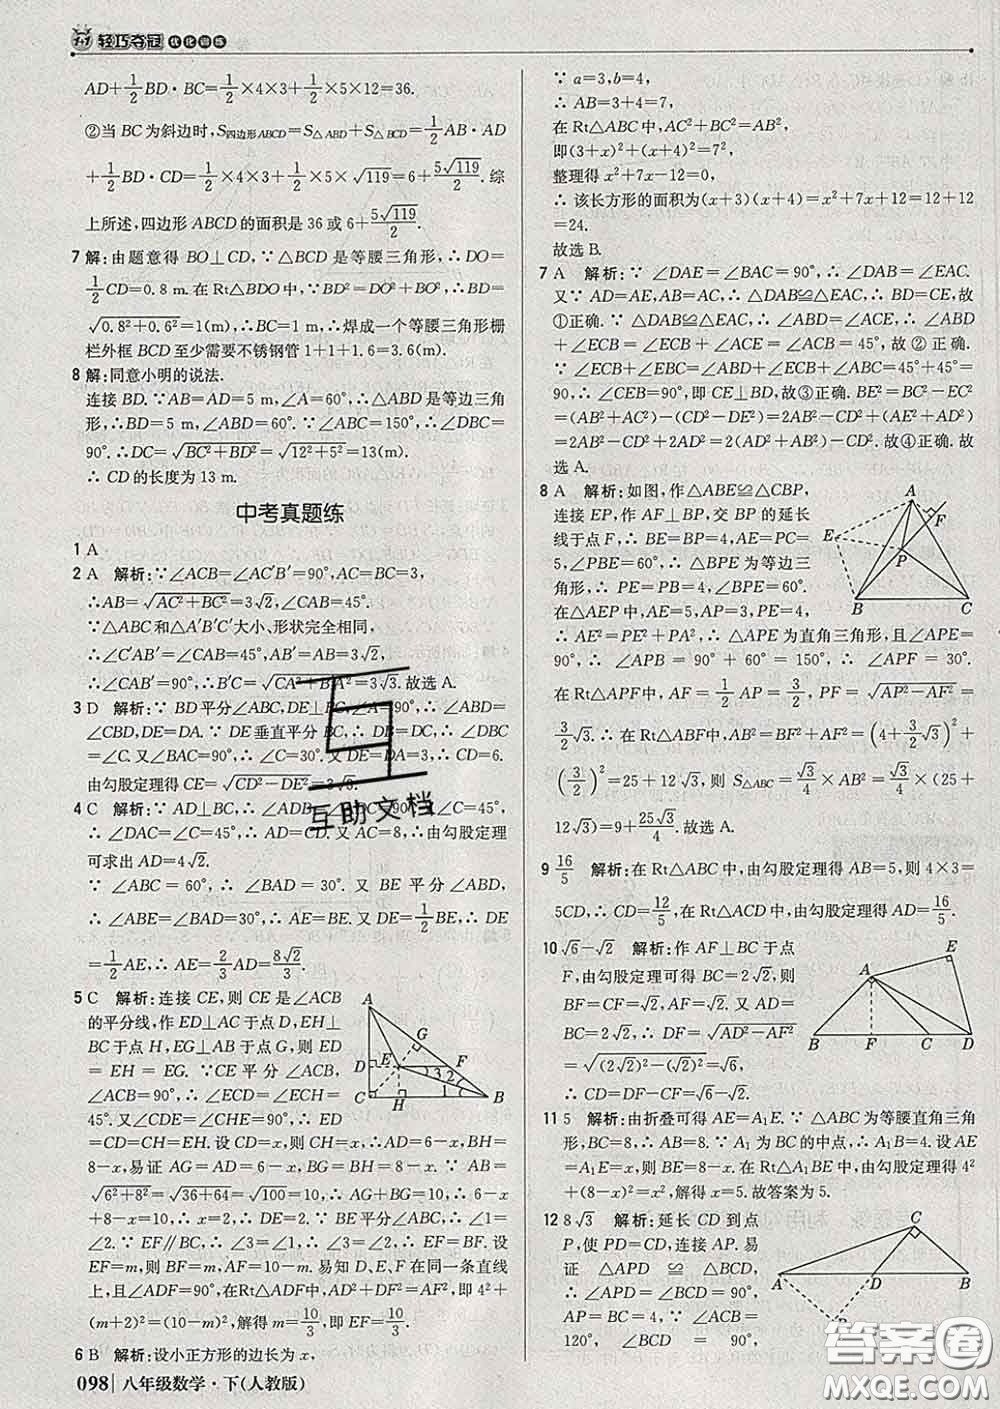 1+1 轻巧夺冠 优化训练
AD+1/2BD·BC=1/2×4×3+1/2×5×12=36.
②当BC为斜边时,S四边形ABCD=S△ABD+S△BCD=1/2AB·AD
+1/2BD·CD=1/2×4×3+1/2×5×√119=6+5√119/2.综
上所述,四边形ABCD的面积是36或6+5√119/2.
7 解:由题意得BO⊥CD,∵△BCD是等腰三角形,∴DO=
1/2CD=0.8 m.在Rt△BDO中,∵BD²=DO²+BO²,∴BD=
√0.8²+0.6²=1(m),∴焊成一个等腰三角形栅
栏外框BCD至少需要不锈钢管1+1+1.6=3.6(m).
8 解:同意小明的说法.
连接BD.∵AB=AD=5 m,∠A=60°,∴△ABD是等边三角
形,∴BD=5 m,∠ABD=60°.∵∠ABC=150°,∴∠DBC=
90°.∴DC=√BC²+BD²=√12²+5²=13(m)
∴ CD的长度为13 m.
中考真题练
1 A
2 A 解析:∵∠ACB=∠AC′B′=90°,AC=BC=3,
∴AB=√AC²+BC²=3√2,∠CAB=45°.
∵△ABC和△A′B′C′大小、形状完全相同,
∴∠C′AB′=∠CAB=45°,AB′=AB=3√2,
∴∠CAB′=90°,∴B′C=√CA²+B′A²=3√3.故选A.
3 D 解析:∵ BD平分∠ABC,DE⊥BC,∠A=90°,∴∠ABD=
∠CBD,DE=DA.∵ DE垂直平分BC,∴ DB=DC,∴∠DBC
=∠C.又∠BAC=90°,∴∠C=30°.又DE=DA=3,∴CD=6.
由勾股定理得CE=√CD²-DE²=3√3.
4 C 解析:∵ AD⊥BC,∴ ∠ADB=∠ADC=90°.∵∠C=45°,
∴ ∠DAC=45°,∴ AD=CD.又AC=8,∴由勾股定理
可求出AD=4√2.
∵ ∠ABC = 60°,∴ ∠BAD=30°.又 BE 平分∠ABD,
∴ ∠ABE=∠BAD=30°,∴AE=BE.又DE=1/2BE,∴DE
=1/2AE,∴ AE=2/3AD=8√2/3.
5 C 解析:连接CE,则CE是∠ACB
的平分线,作ED⊥AC于点D,EH⊥
BC于点H,EG⊥AB于点G,则ED
=EH=EG. ∵CE平分∠ACB,
∠ACB=90°,∴∠ECD=∠ECH=
45°,∴∠CDE=∠CHE=90°,∴ED
=CD=CH=EH.设CD=x,则CH=x,∴AD=6-x,BH=
8-x,易证AG=AD=6-x,BG=BH=8-x. ∵ AB=
√6²+8²=√36+64=√100=10,∴AG+BG=10,∴6-x
+8-x=10,解得x=2,∴CD=2,ED=2,AD=4.∵∠1=
∠2. ∵ EF∥BC,∴∠3=∠1,∴∠3=∠2,∴EF=BF.设
EF=m,则BF=m,AF=10-m.易知D、E、F在同一条直线
上,∴∠ADF=90°,在Rt△ADF中,AD²+DF²=AF²,即4²+
(m+2)²=(10-m)²,解得m=10/3,即EF=10/3.
6 B 解析:设小正方形的边长为x,
∵ a=3,b=4,
∴ AB=3+4=7,
在Rt△ABC中,AC²+BC²=AB²,
即(3+x)²+(x+4)²=7²,
整理得x²+7x-12=0,
∴ 该长方形的面积为(x+3)(x+4)=x²+7x+12=12+12
=24.
故选B.
7 A 解析:∵ ∠DAE=∠BAC=90°,∴ ∠DAB=∠EAC.
又∵ AD=AE,AB=AC,∴△DAB≌△EAC,∴ BD=CE,故
①正确.∵ △DAB≌△EAC,∴ ∠ABD=∠ACE,∴∠ABD
+∠ECB=∠ECB+∠ACE=∠ACB=45°,故 ② 正 确.
∵∠ECB+∠EBC=∠ABD+∠ECB+∠ABC=45°+45°=
90°,∴∠CEB=90°,即CE⊥BD,故③正确. BE²=BC²-EC²=
(AB²+AC²)-(CD²-DE²)=2AB²-CD²+(AE²+AD²)
=2AB²-CD²+2AD²=2(AD²+AB²)-CD²,故④正确.故
选A.
8 A 解析:如图,作△ABE≌△CBP,
连接EP,作AF⊥BP,交BP的延长
线于点F,∴ BE=BP=4,AE=PC=
5,∠PBE=60°,∴△BPE为等边三
角形,∴ PE=PB=4,∠BPE=60°.
在△AEP中,AE=5,AP=3,PE=4,
∴ AE²=PE²+PA²,∴ △APE为直角三角形,且∠APE=
90°,∴ ∠APB = 90° + 60° = 150°. ∴ ∠APF = 30°.
∴ 在Rt△APF中,AF=1/2 AP=3/2,PF=√AP²-AF²=
3/2√3.∴在Rt△ABF中,AB²=BF²+AF²=(4+3/2√3)²+
(3/2)²=25+12√3,则S△ABC=√3/4×AB²=√3/4×(25+
12√3)=9+25√3/4.故选A.
9 16/5 解析:在Rt△ABC中,由勾股定理得AB=5,则4×3=
5CD,∴CD=12/5,在Rt△ACD中,由勾股定理得AD=16/5.
10 √6-√2 解析:作AF⊥BC于点
F,由勾股定理可得BC=2√2,则
BF=CF=√2,AF=√2. 又AD=
BC=2√2,∴ DF=√AD²-AF²
=√(2√2)²-(√2)²=√6,
∴CD=DF-CF=√6-√2.
11 5 解析:由折叠可得AE=A₁E.∵ △ABC为等腰直角三角
形,BC=8,∴AB=8.∵ A₁为BC的中点,∴A₁B=4.设AE
=A₁E=x,则BE=8-x.在Rt△A₁BE中,由勾股定理得4²
+(8-x)²=x²,解得x=5.故答案为5.
12 8√3 解析:延长CD到点
P,使PD=CD,连接AP.易
证 △APD ≌ △BCD,
∴ ∠APD=∠BCD=90°,
AP=BC=4,∵∠ACB=
120°, ∠BCD = 90°,
A
B
C
D
E
F
G
H
1
2
3
A
B
C
E
F
P
A
B
C
D
E
F
A
B
C
D
P
互助文档
答案圈
MXQE.COM
098 八年级数学·下(人教版)